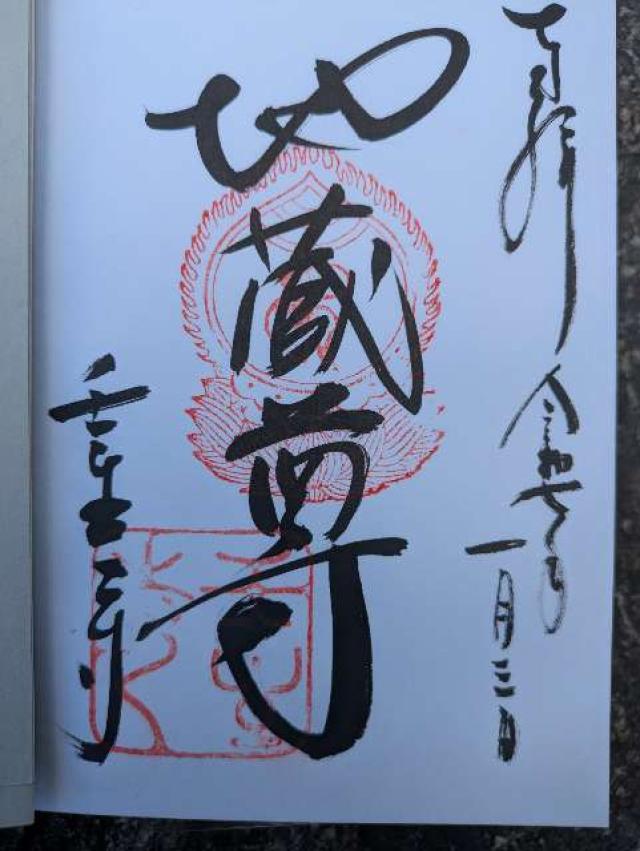 奉拝 令和七年
一月三日
地蔵尊
壬生寺